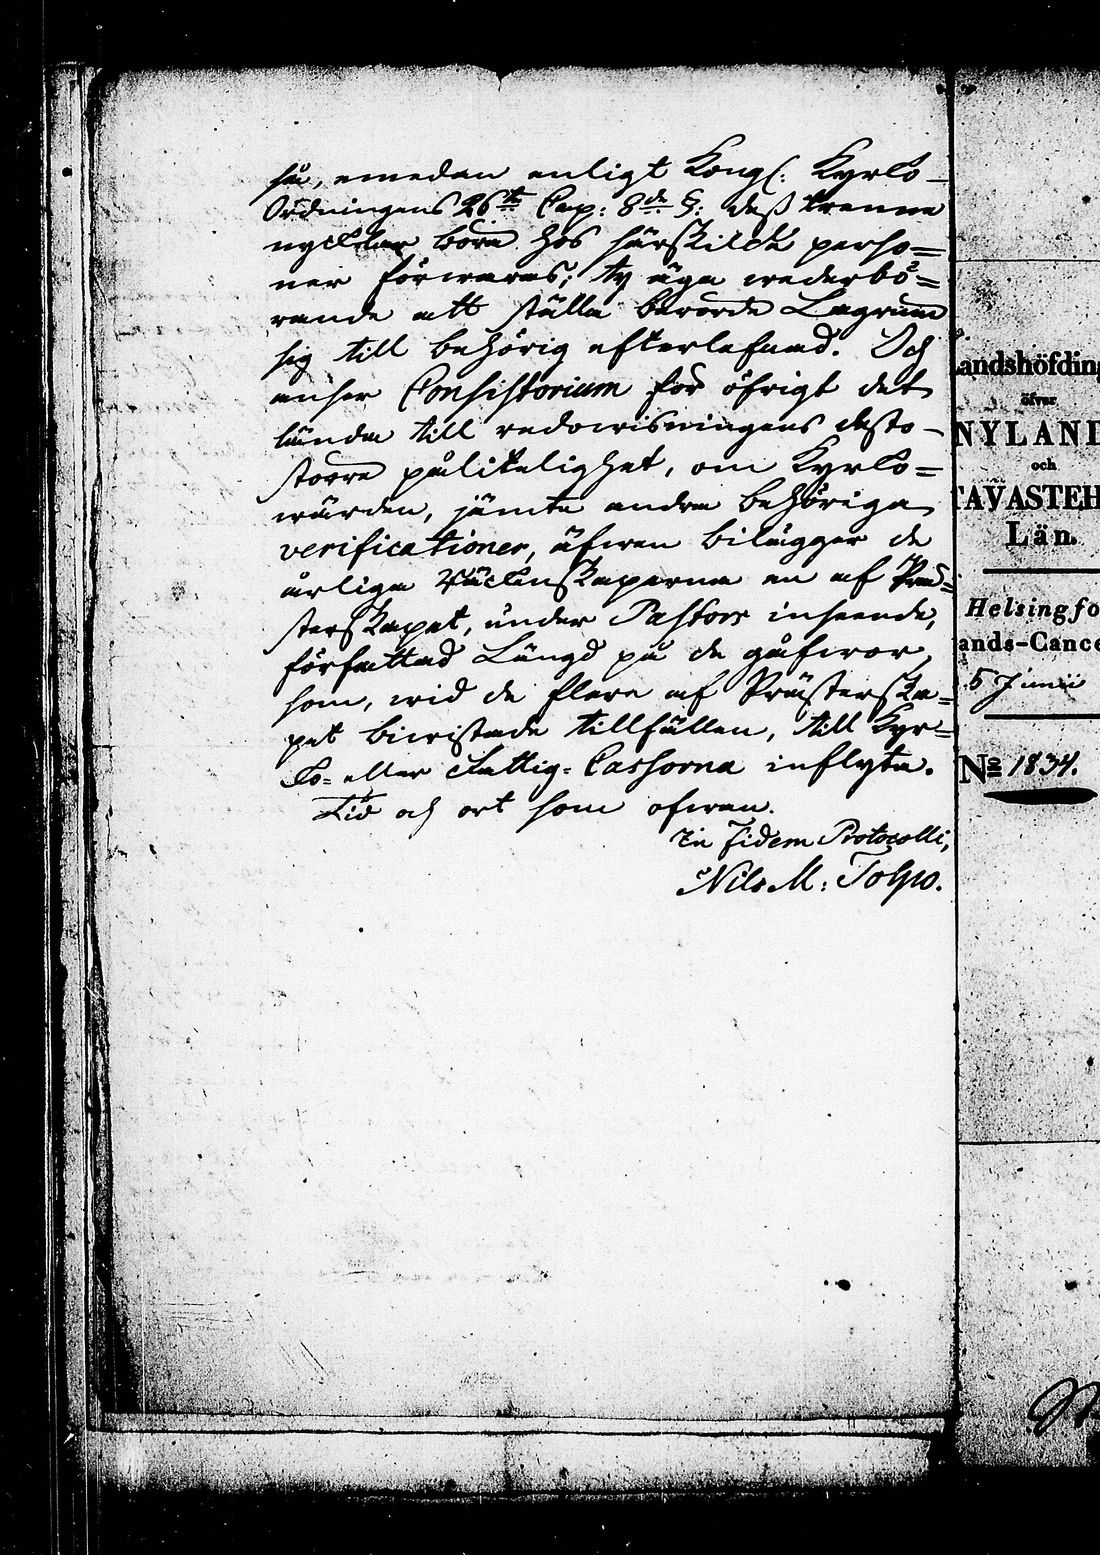 så, emedan enligt Kongl: Kyrko-
Ordningens 26te Cap: 8de §: dess trenne
nycklar böra hos särskilde perso=
ner förwaras; ty äga wederbö=
rande att ställa berörde Lagrum
sig till behörig efterlefnad. Och
anser Consistorium för öfrigt det
lända till redowisningens desto-
större pålitelighet, om Kyrko=
wärden, jämte andra behöriga
verificationer, äfwen bilägger de
årliga Räckenskaperna en af Prä=
sterskapet, under Pastors inseende,
författad Längd på de gåfwor,
som, wid de flere af Prästerska=
pet biwistade tillfällen, till Kyr=
ko- eller Fattig-Cassorna inflyta.
Tid och ort som ofwan.
In Fidem Protocolli,
Nils M: Tolpo.
Landshöfding
öfver
NYLAND
och
TAVASTEH
Län.
Helsingfo
ands-Cance
5 Junii
No 1834.